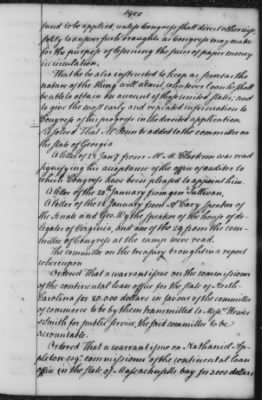 fund to be applied, unless Congress shall direct otherwise,
solely to answer such draughts as Congress may make
for the purpose of lessening the sum of paper money
in circulation.
That he be also instructed to keep as far as the
nature of the thing will admit, whenever he shall
be able to obtain an account of these united states, and
to give the most early and repeated information to
Congress of his progress in the desired application.
Resolved That Mr Penn be added to the committee on
the state of Georgia
A letter of 28 Jany from Mr M. Clarkson was read
signifying his acceptance of the office of auditor to
which Congress have been pleased to appoint him.
A letter of the 20th January from gen Sullivan,
A letter of the 18 January from A Cary speaker of
the Senate and Geo. Wythe speaker of the house of de-
legates of Virginia, and one of the 29 from the com-
mittee of Congress at the camp were read.
The committee on the treasury brought in a report
whereupon
Ordered That a warrant issue on the commissioners
of the continental loan office for the state of North-
Carolina for 20.000 dollars in favour of the committee
of commerce to be by them transmitted to Messrs Hewes
& Smith for public service, the said committee to be
accountable.
Ordered That a warrant issue on Nathaniel Ap-
pleton esqr commissioner of the continental loan
office in the state of Massachusetts bay for 3000 dollars